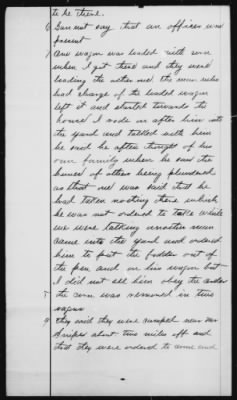 to be there.
6 Can not say that an officer was
present
7 One wagon was loaded with corn
when I got there and they were
loading the other and the man who
had charge of the loaded wagon
left it and started towards the
house I rode in after him into
the yard and talked with him
he said he often thought of his
own family when he saw the
houses of others being plundered
as that one was said that he
had taken nothing there which
he was not ordered to take while
we were talking another man
came into the yard and ordered
him to put the fodder out of
the pen and on his wagon but
I did not see him obey the order
8 the corn was removed in two
wagons
9 they said they were camped near
about two miles off and
that they were ordered to come and